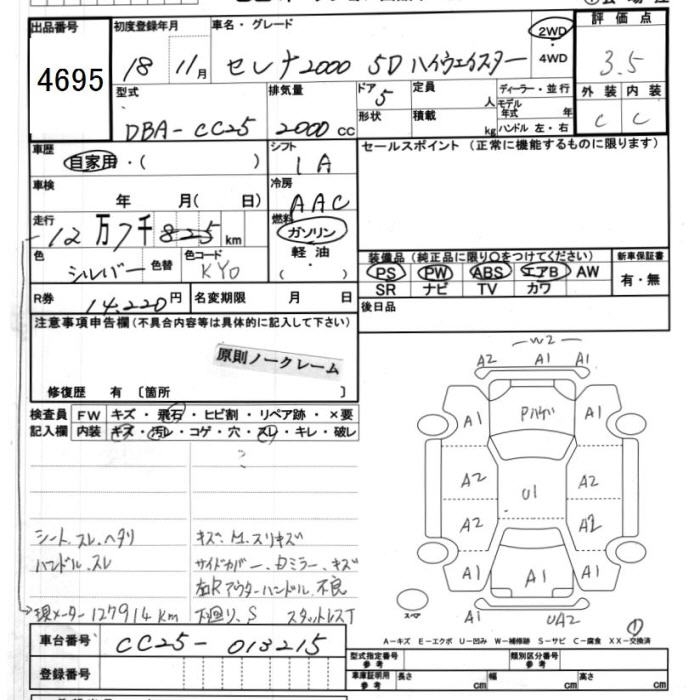 出品番号
4695
初度登録年月
18 11月
車名・グレード
セレナ2000 5D ハイウェイスター
2WD
・
4WD
評価点
3.5
外装 内装
C C
型式
DBA-CC25
排気量
2000 cc
ドア
5
定員
人
ディーラー・並行
モデル年式 年
形状
積載
kg
ハンドル 左・右
車歴
自家用・( )
シフト
IA
セールスポイント (正常に機能するものに限ります)
車検
年 月(日)
冷房
AAC
走行
12万7千825 km
燃料
ガソリン
軽油
( )
色
シルバー
色替
色コード
KY0
装備品 (純正品に限り○をつけてください)
PS PW ABS エアB AW
SR ナビ TV カワ
新車保証書
有・無
R券
14.220円
名変期限 月 日
後日品
注意事項申告欄 (不具合内容等は具体的に記入して下さい)
原則ノークレーム
修復歴 有 〔箇所 〕
検査員
記入欄
FW キズ・飛石・ヒビ割・リペア跡・×要
内装 キズ・汚レ・コゲ・穴・スレ・キレ・破レ
シート.スレ.ヘタリ
ハンドル.スレ
現メーター127914km
キズ.M.スリキズ
サイドカバー、カミラー、キズ
右Rアウターハンドル.不良
下廻り、S スタットレスT
W2
A2 A1 A1
A1 A1
A2 A2
U1
A2 A2
A1 A1 A1
A1 UA2
スペア
①
A-キズ E-エクボ U-凹み W-補修跡 S-サビ C-腐食 XX-交換済
車台番号
CC25-013215
登録番号
型式指定番号
参考
類別区分番号
参考
車庫証明用
参考
長さ cm
幅 cm
高さ cm